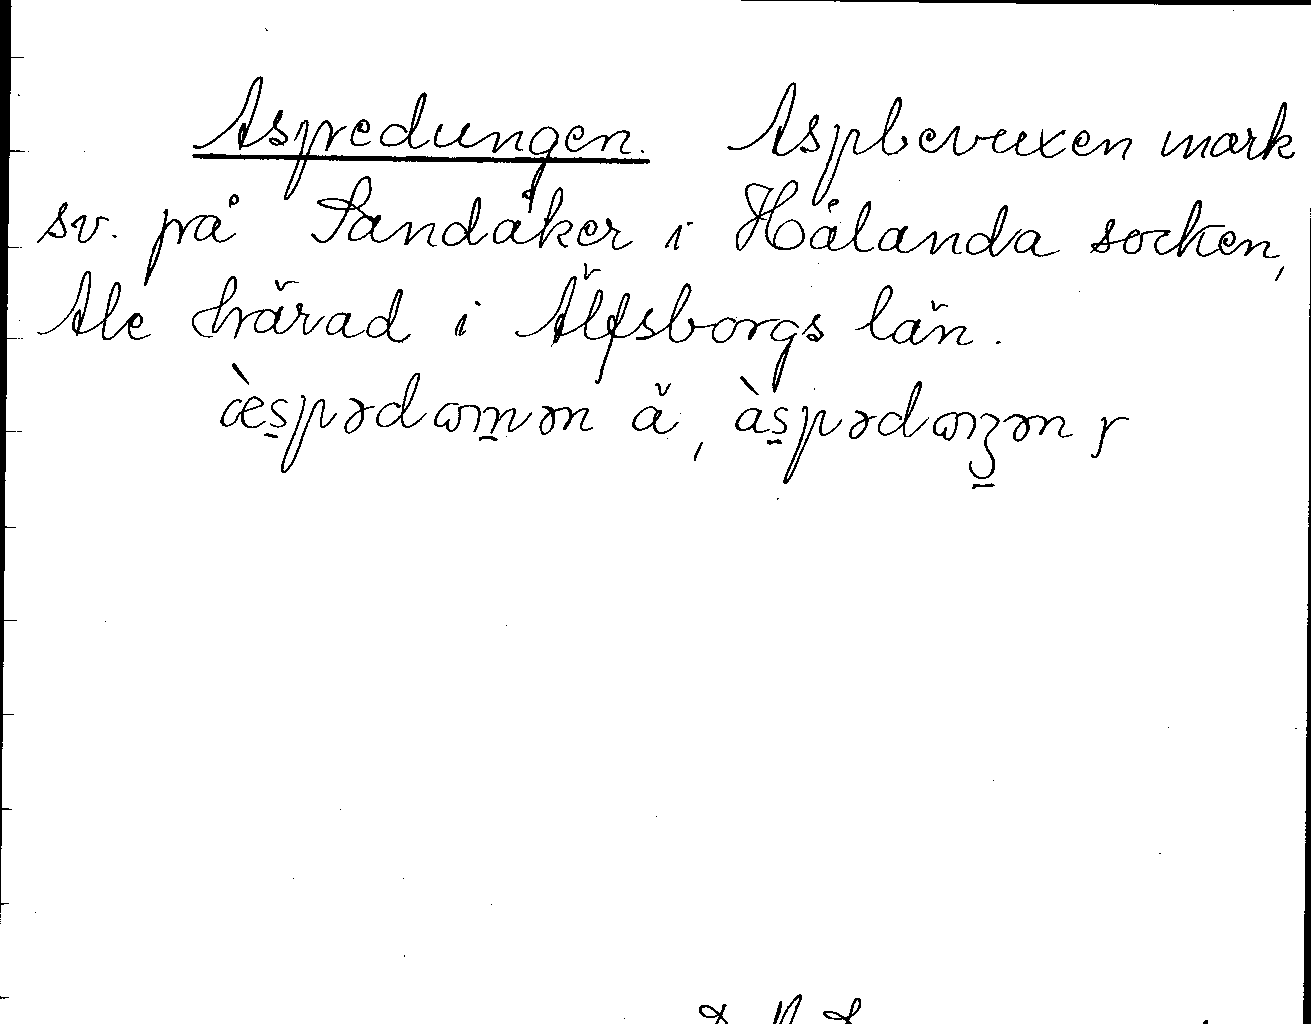 Aspredungen. Aspbevuxen mark
sv. på Sandåker i Hålanda socken,
Ale härad i Älfsborgs län.
æ̀s̱pədɷm̱ən ä, às̱pədɷ